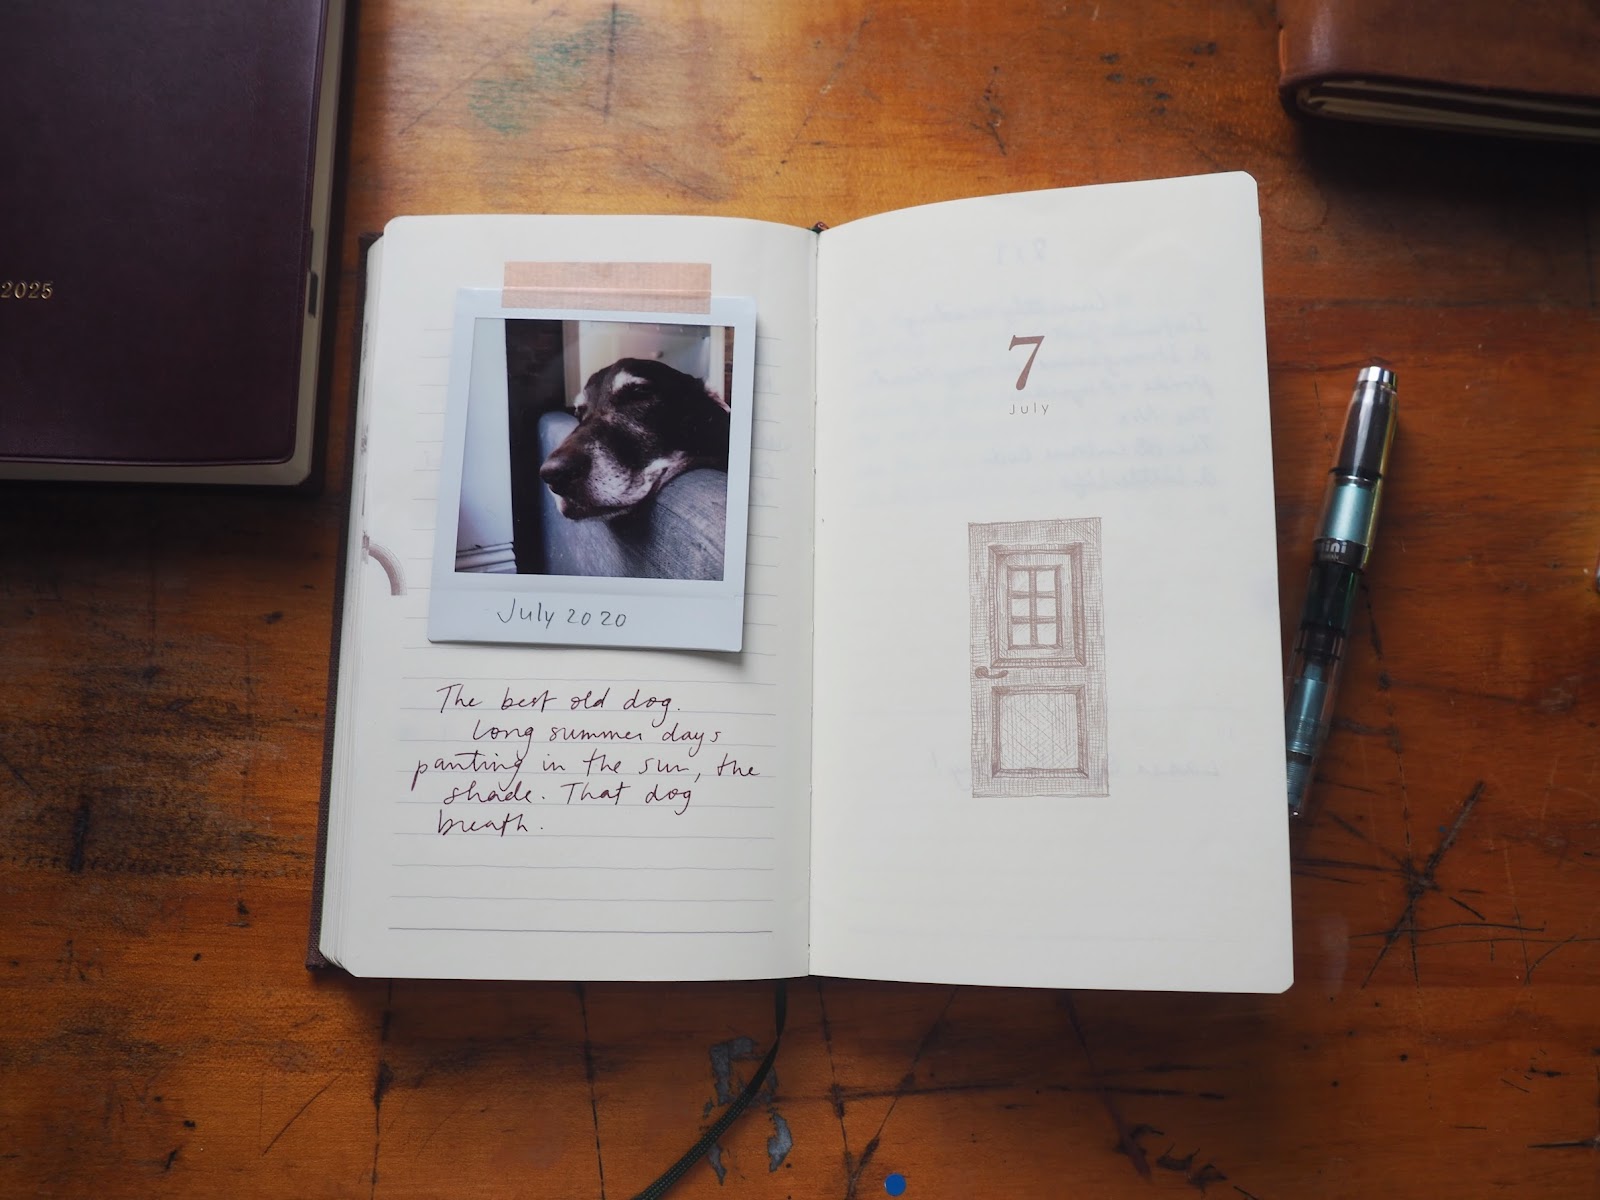 2025
July 2020
The best old dog.
Long summer days
panting in the sun, the
shade. That dog
breath.
7
July